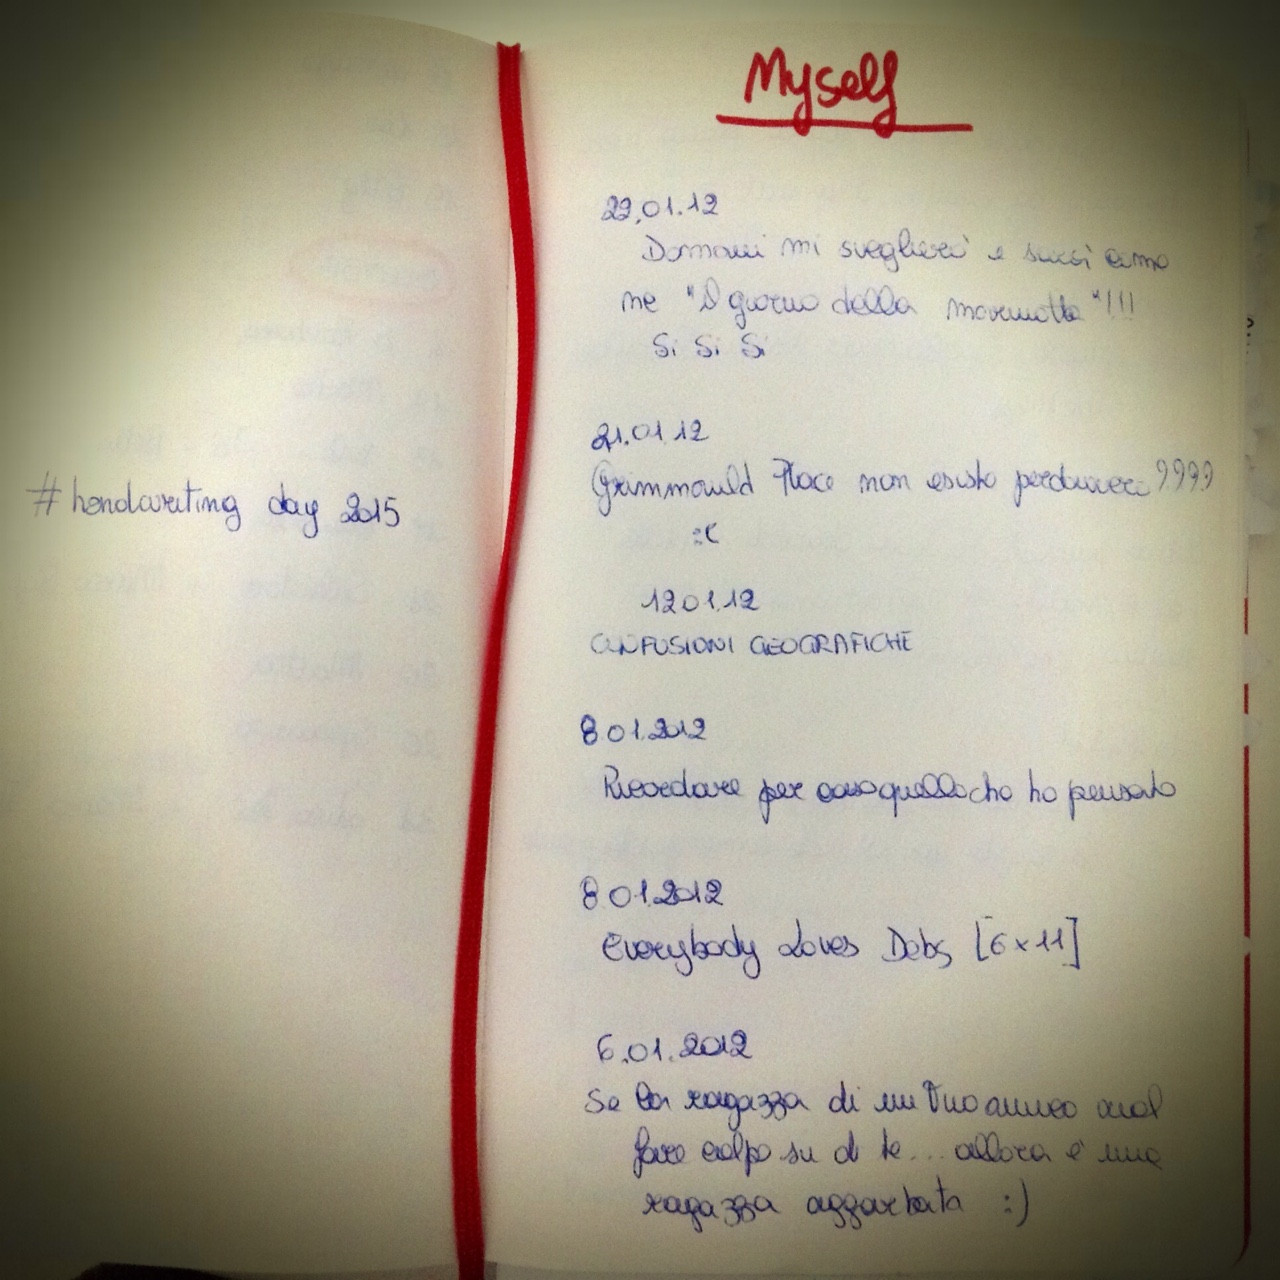 # handwriting day 2015
Myself
22.01.12
Domani mi sveglierò e sarà come
ne "Il giorno della marmotta"!!!
Si Si Si
21.01.12
Grimmauld Place non esiste perdavvero????
:(
12.01.12
CONFUSIONI GEOGRAFICHE
8.01.2012
Ricordare per caso quello che ho pensato
8.01.2012
Everybody Loves Debs [6x11]
6.01.2012
Se la ragazza di un tuo amico vuol
fare colpo su di te... allora è una
ragazza aggarbata :)